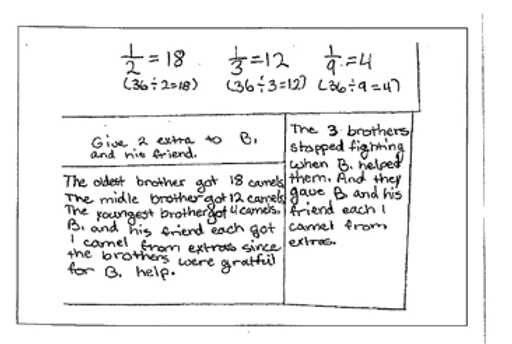 1/2 = 18 1/3 = 12 1/9 = 4
(36÷2=18) (36÷3=12) (36÷9=4)
Give 2 extra to B.
and his friend.
The oldest brother got 18 camels
The midle brother got 12 camels
The youngest brother got 4 camels.
B. and his friend each got
1 camel from extras since
the brothers were gratful
for B. help.
The 3 brothers
stopped fighting
when B. helped
them. And they
gave B. and his
friend each 1
camel from
extras.